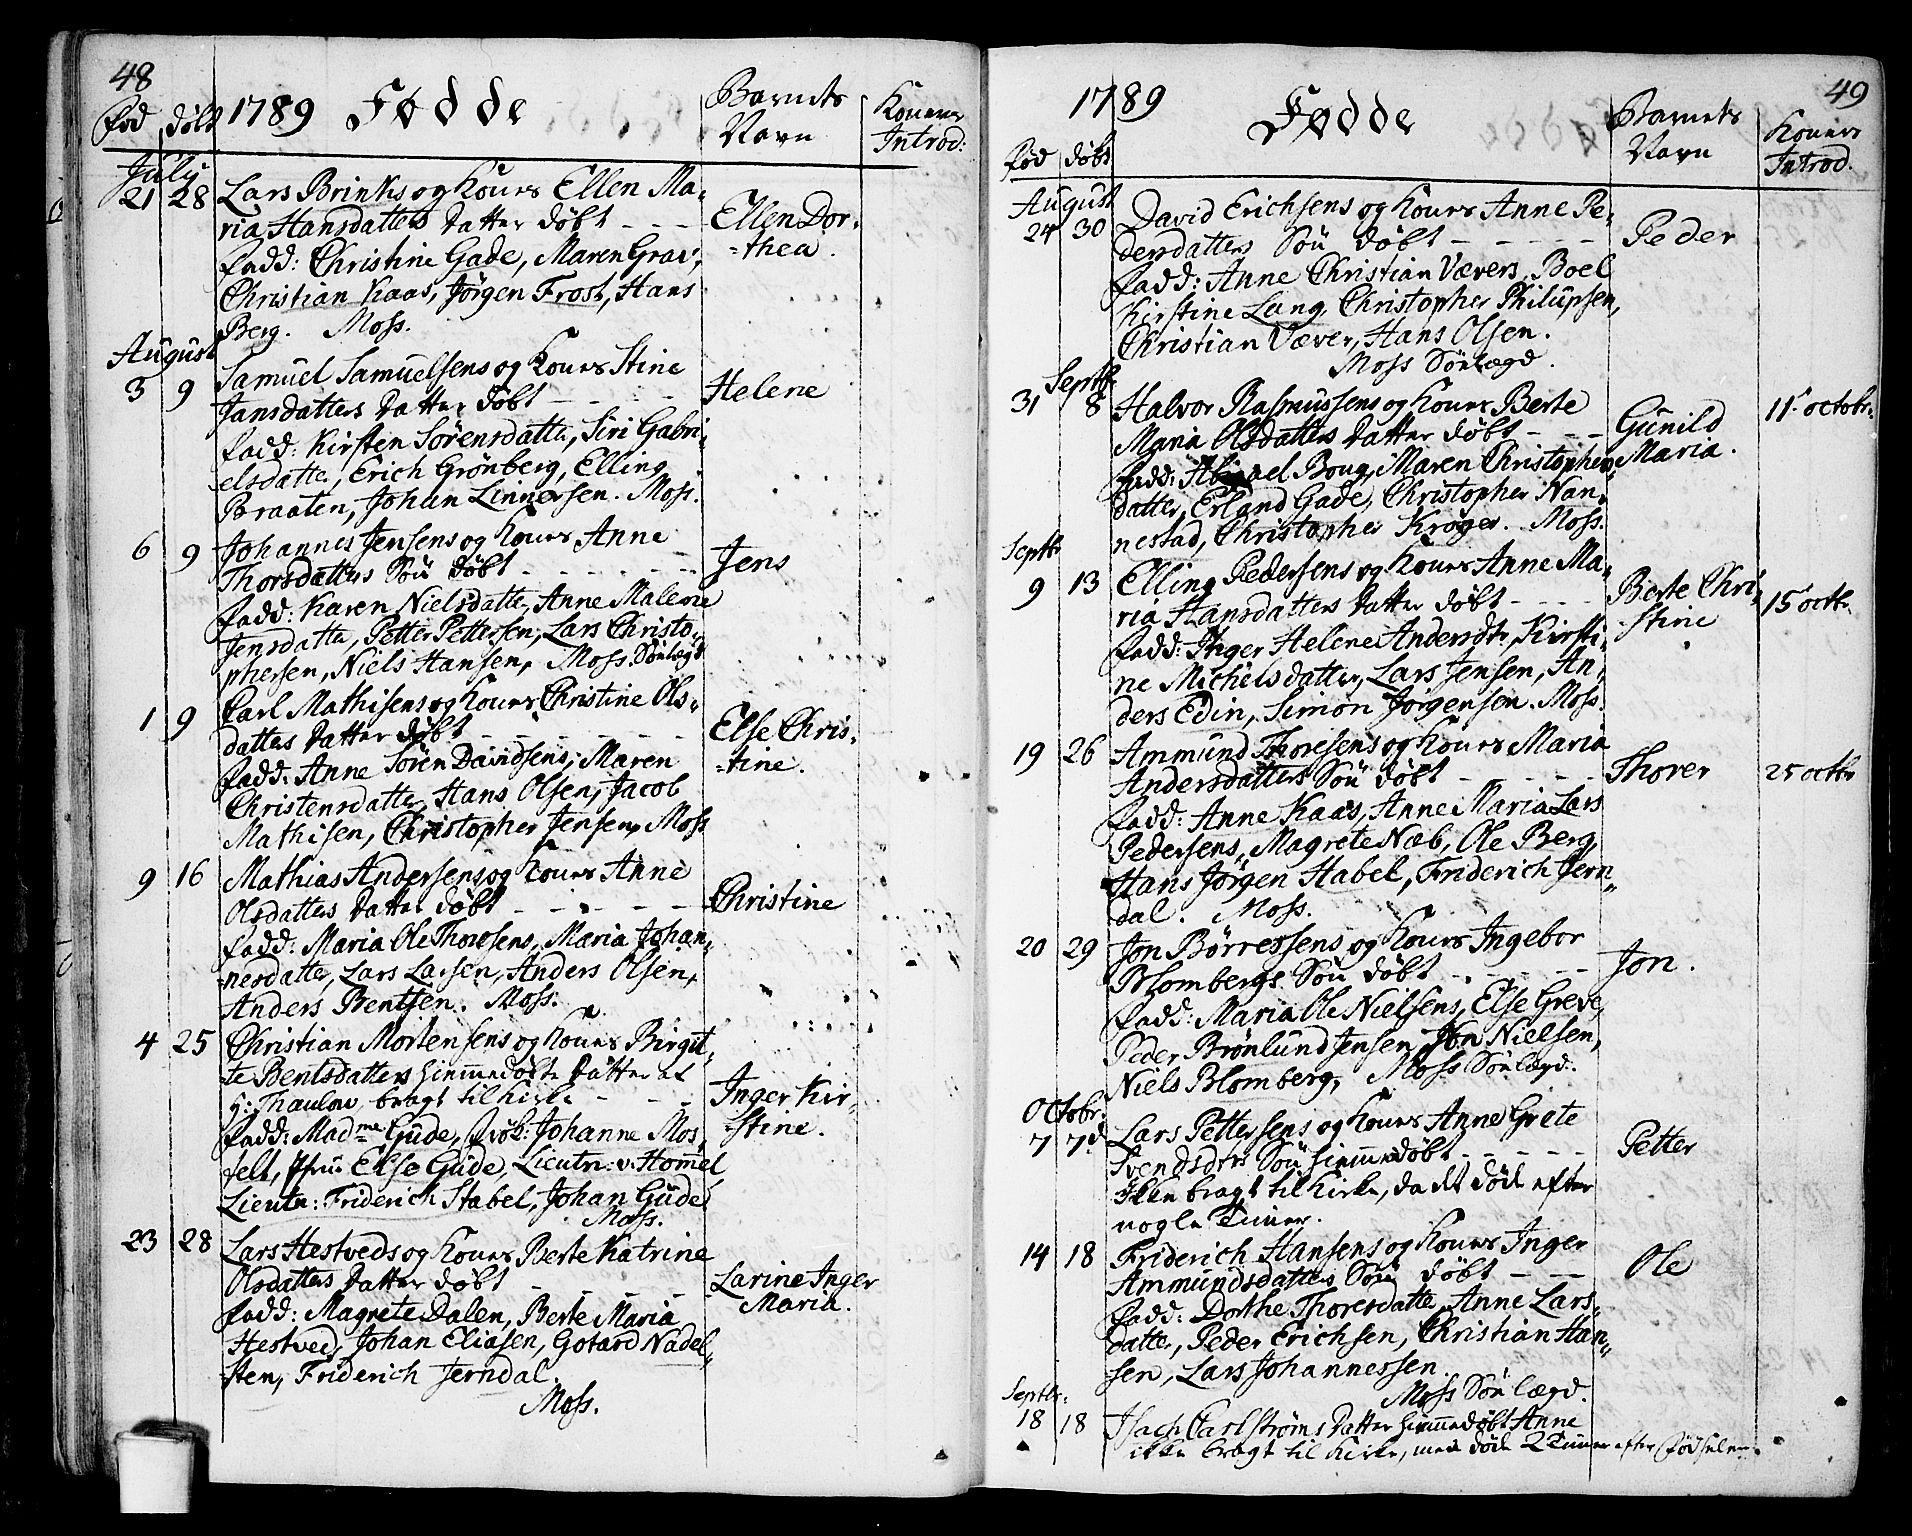 48
Fød døbt 1789 Fødde Barnets Navn Koners Introd:
July
21 28 Lars Brinks og Kones Ellen Ma-
ria Hansdatters Datter døbt - - - Ellen Dor-
Fadd: Christine Gade, Maren Grav, -thea.
Christian Kaas, Jørgen Frost, Hans
Berg. Moss.
August
3 9 Samuel Samuelsens og Kones Stine
Jansdatters Datter døbt - - - Helene
Fadd: Kirsten Sørensdatter, Siri Gabri-
elsdatter, Erich Grønberg, Elling
Braaten, Johan Linnersen. Moss.
6 9 Johannes Jensens og Kones Anne
Thorsdatters Søn døbt - - - Jens
Fadd: Karen Nielsdatter, Anne Malene
Jensdatter, Petter Pettersen, Lars Christo-
phersen, Niels Hansen, Moss Sønlægd
1 9 Carl Mathisens og Kones Christine Ols-
datters Datter døbt - - - Else Chris-
Fadd: Anne Søren Davidsens, Maren -tine.
Christensdatter, Hans Olsen, Jacob
Mathisen, Christopher Jensen, Moss
9 16 Mathias Andersens og Kones Anne
Olsdatters Datter døbt - - - Christine
Fadd: Maria Ole Thoresens, Maria Johan-
nesdatter, Lars Larsen, Anders Olsen,
Anders Bentsen. Moss.
4 25 Christian Mortensens og Kones Birgit-
te Bentsdatters hiemmedøbte Datter af
H: Thaulow, bragt til Kirke - - - Inger Kir-
Fadd: Madme Gude, Johanne Mos- -stine.
felt, Else Gude, Lieutn: v: Hommel
Lieutn: Friderich Stabel, Johan Gude
Moss.
23 28 Lars Hestveds og Kones Berte Katrine
Olsdatters Datter døbt - - - Larine Inger
Fadd: Magrete Dalen, Berte Maria Maria.
Hestved, Johan Eliasen, Gotard Nadel-
sten, Friderich Jerndal.
Moss.
49
1789 Fødde Barnets Navn Koners Introd.
Fød døbt
August
24 30 David Erichsens og Kones Anne Pe-
dersdatters Søn døbt - - - Peder
Fadd: Anne Christian Vævers, Boel
Kirstine Lang, Christopher Philupsen,
Christian Væver, Hans Olsen.
Moss Sønlægd.
Septbr
31 8 Halvor Rasmussens og Kones Berte 11 octobr.
Maria Olsdatters Datter døbt - - - Gunild
Fadd: Bong, Maren Christopher- Maria.
datter, Erland Gade, Christopher Nan-
nestad, Christopher Krøger. Moss.
Septbr
9 13 Elling Pedersens og Kones Anne Ma-
ria Hansdatters Datter døbt - - - Berte Chri- 15 octbr.
Fadd: Inger Helene Andersdtr, Kirsti- -stine
ne Michelsdatter, Lars Jensen, An-
ders Edin, Simon Jørgensen. Moss.
19 26 Ammund Thoresens og Kones Maria
Andersdatters Søn døbt - - - Thorer 25 octbr
Fadd: Anne Kaas, Anne Maria Lars
Pedersens, Magrete Næb, Ole Berg,
Hans Jørgen Stabel, Friderich Jern-
dal. Moss.
20 29 Jon Børressens og Kones Ingebor
Blombergs Søn døbt - - - Jon.
Fadd: Maria Ole Nielsens, Else Greve,
Peder Brønlund Jensen, Jon Nielsen,
Niels Blomberg, Moss Sønlægd.
Octobr.
7 7d Lars Pettersens og Kones Anne Grete
Svendsdtrs Søn hiemmedøbt - - - Petter
Ikke bragt til Kirke, da det døde efter
nogle Timer.
14 18 Friderich Hansens og Kones Inger
Ammundsdatters Søn døbt - - - Ole
Fadd: Dorthe Thoresdatter, Anne Lars-
datter, Peder Erichsen, Christian Han-
sen, Lars Johannessen.
Moss Sønlægd.
Septbr.
18 18 Isach Carlstrøms Datter hiemmedøbt Anne
ikke bragt til Kirke, men døde 2 Timer efter Fødselen.